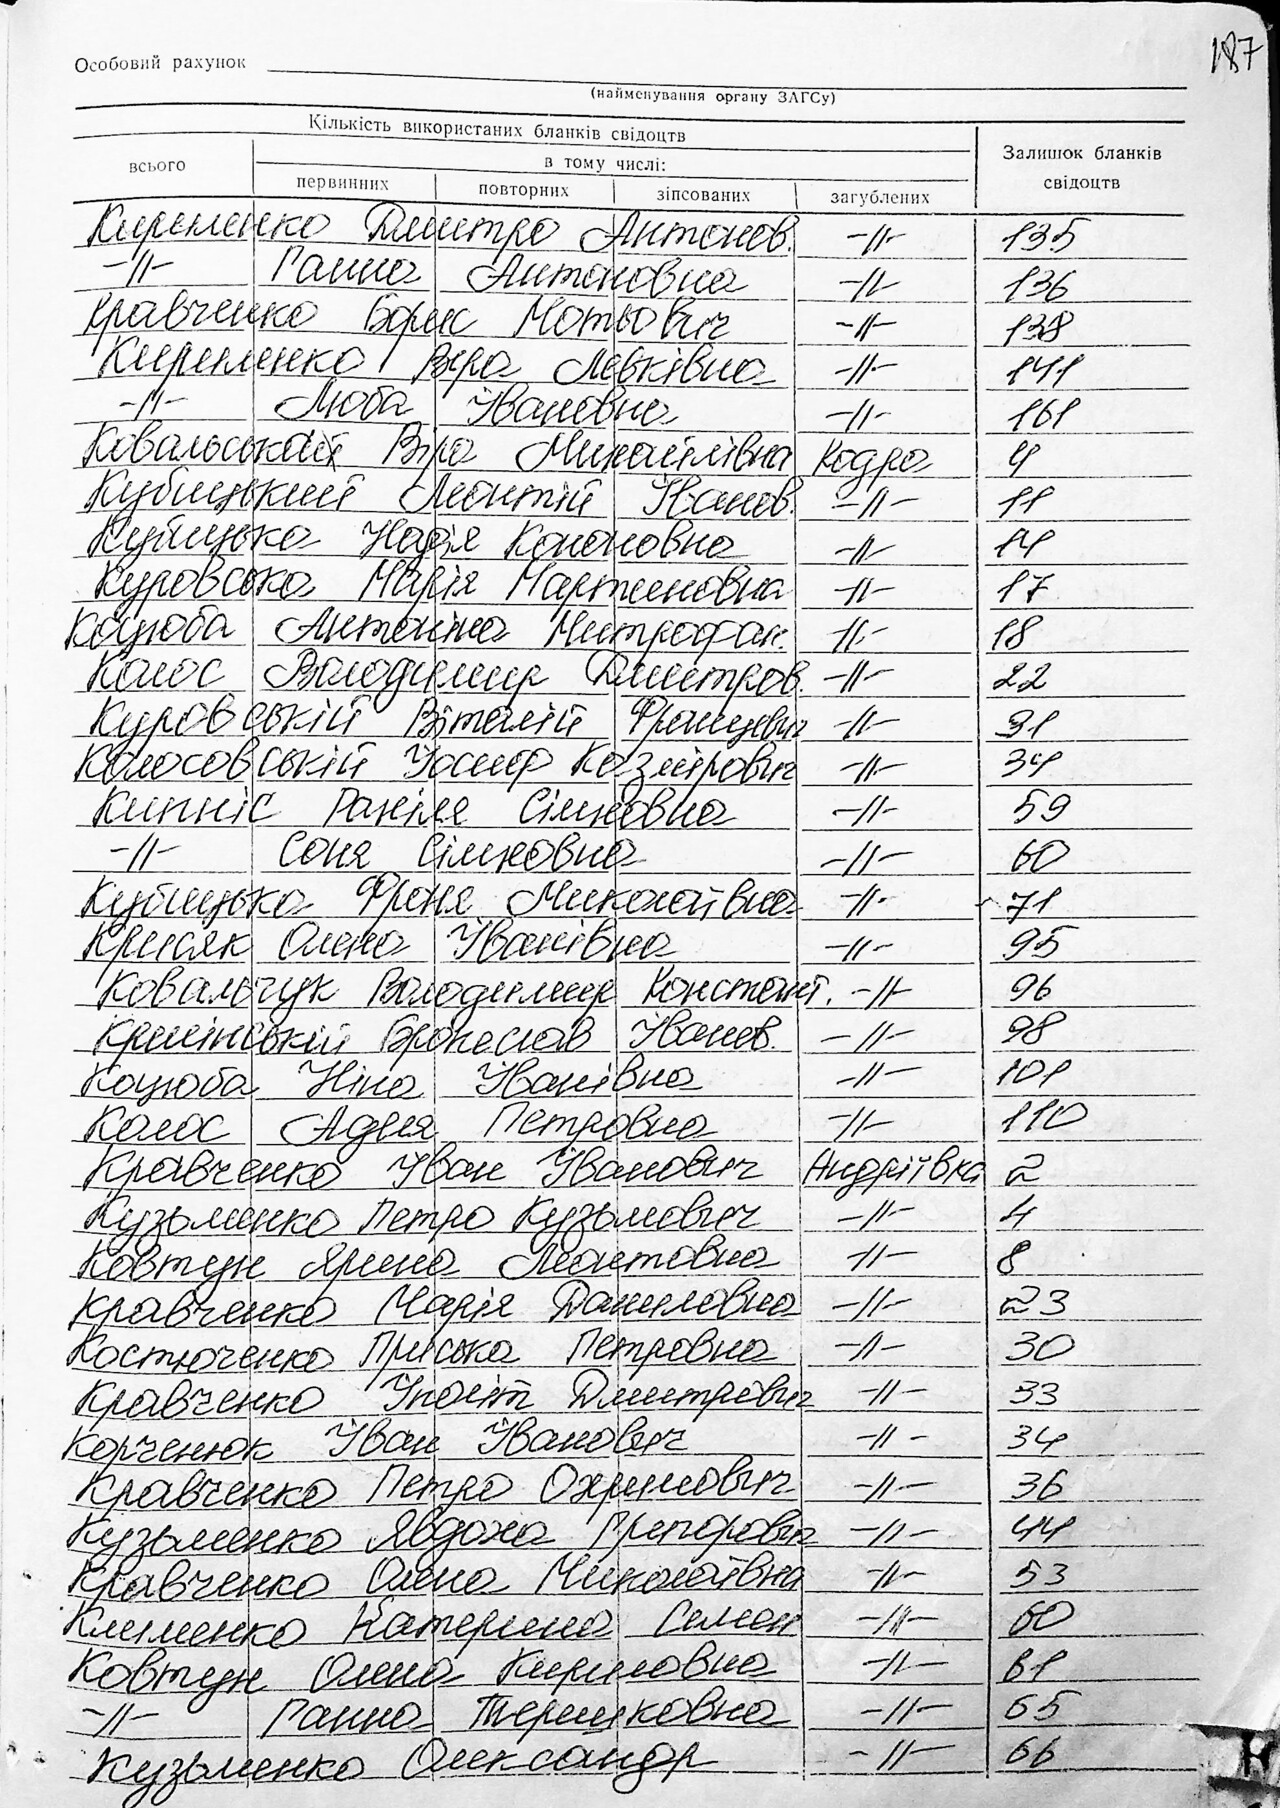 187
Особовий рахунок
(найменування органу ЗАГСу)
Кількість використаних бланків свідоцтв
Залишок бланків свідоцтв
всього
в тому числі:
первинних повторних зіпсованих загублених
Дмитро Антонов. -//- 135
-//- Ганна Антоновна -//- 136
Кравченко Борис Мотьович -//- 138
Віра Левківна -//- 141
-//- Люба Івановна -//- 161
Віра Михайлівна Кодра 4
Кубицький Леонтій Іванов. -//- 11
Кубицька Надія Кононовна -//- 14
Куровська Марія Мартиновна -//- 17
Коцюба Антоніна Митрофан. -//- 18
Колос Володимир Дмитров. -//- 22
Куровський Віталій Францевич -//- 31
Колосовській Йосип Казмірович -//- 34
Кипніс Рахіля -//- 59
-//- Соня -//- 60
Кубицька Франя Миколаївна -//- 71
Олена Іванівна -//- 95
Ковальчук Володимир Констант. -//- 96
Броніслав Іванов. -//- 98
Коцюба Ніна Іванівна -//- 101
Колос Адель Петровна -//- 110
Кравченко Іван Іванович Андріївка 2
Кузьменко Петро Кузьмович -//- 4
Ковтун Ярина Леонтовна -//- 8
Кравченко Марія Даниловна -//- 23
Костюченко Приська Петровна -//- 30
Кравченко Іполіт Дмитрович -//- 33
Корченюк Іван Іванович -//- 34
Кравченко Петро Охримович -//- 36
Кузьменко Явдоха -//- 44
Кравченко Олена Миколаївна -//- 53
Клименко Катерина Семен -//- 60
Ковтун Олена Кириловна -//- 61
-//- Ганна Терешковна -//- 65
Кузьменко Олександр -//- 66